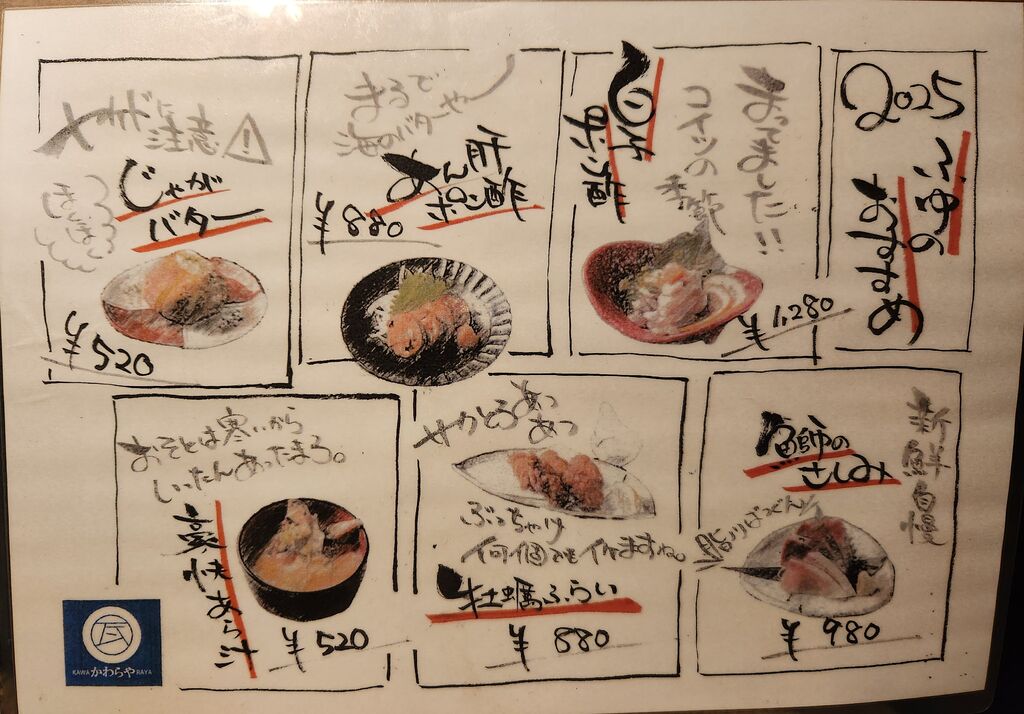 2025
冬の
おすすめ
まってました!!
コイツの
季節
白子
ポン酢
¥1,280
まるで
海のバターやー
あん肝
ポン酢
¥880
やけどに
注意
じゃが
バター
¥520
新鮮自慢
鰤の
さしみ
脂ノリばつぐん!
¥980
サクとろあつ
あつ
ぶっちゃけ
何個でも
牡蠣ふらい
¥880
おそとは寒いから
いったんあったまろ。
豪快あら汁
¥520
瓦
KAWA かわらや RAYA